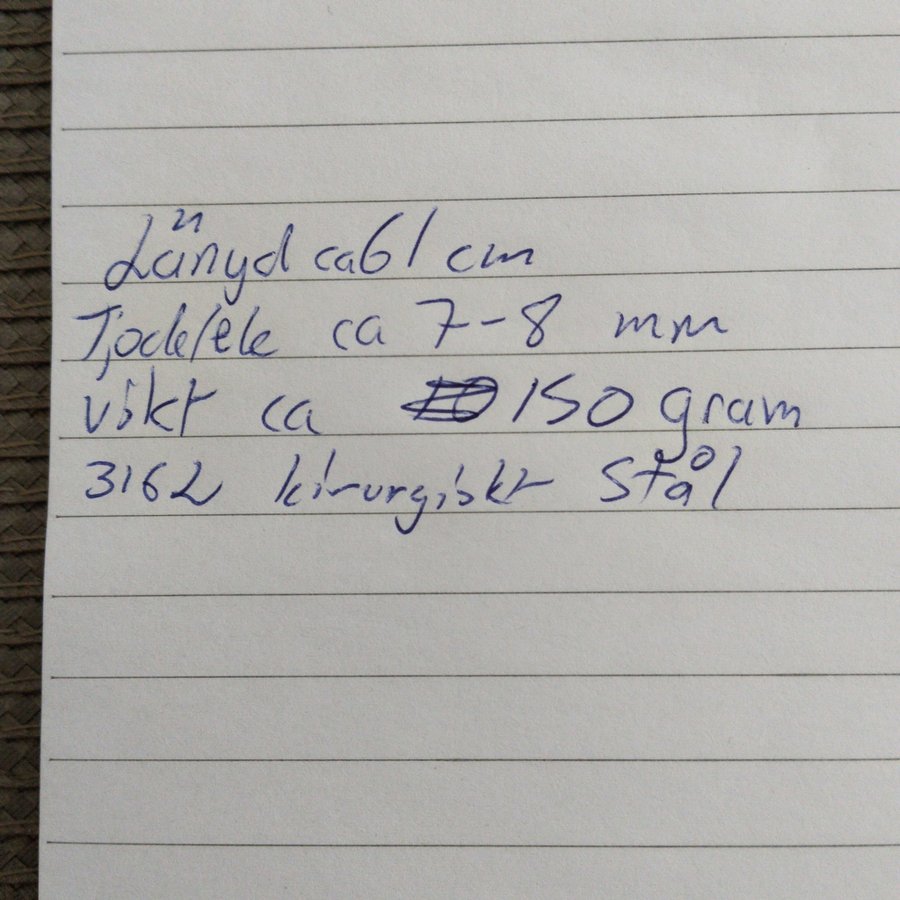 Länyd ca 61 cm
Tjocklek ca 7-8 mm
vikt ca 150 gram
316L kirurgiskt Stål